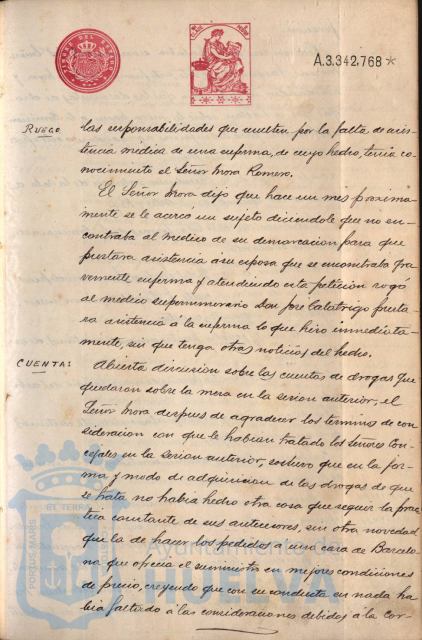 A.3.342.768*
RUEGO
las responsabilidades que resulten por la falta de asis-
tencia médica de una enferma, de cuyo hecho, tenia co-
nocimiento el Señor Mora Romero.
El Señor Mora dijo que hace un mes proxima-
mente se le acercó un sujeto diciendole que no en-
contraba al medico de su demarcacion para que
prestara asistencia á su esposa que se encontraba gra-
vemente enferma y atendiendo esta petición rogó
al medico supernumerario Don José Calatrigo presta-
ra asistencia á la enferma lo que hizo inmediata-
mente, sin que tenga otras noticias del hecho.
CUENTA:
Abierta discusion sobre las cuentas de drogas que
quedaron sobre la mesa en la sesion anterior, el
Señor Mora despues de agradecer los terminos de con-
sideracion con que le habian tratado los Señores Con-
cejales en la sesion anterior, sostuvo que en la for-
ma y modo de adquisicion de las drogas de que
se trata no habia hecho otra cosa que seguir la prac-
tica constante de sus antecesores, sin otra novedad
que la de hacer los pedidos a una casa de Barcelo-
na que ofrecia el suministro en mejores condiciones
de precio, creyendo que con su conducta en nada ha-
bia faltado á las consideraciones debidas á la Cor-
PORTUS MARIS
ET TERRÆ
Ayuntamiento de
HUELVA